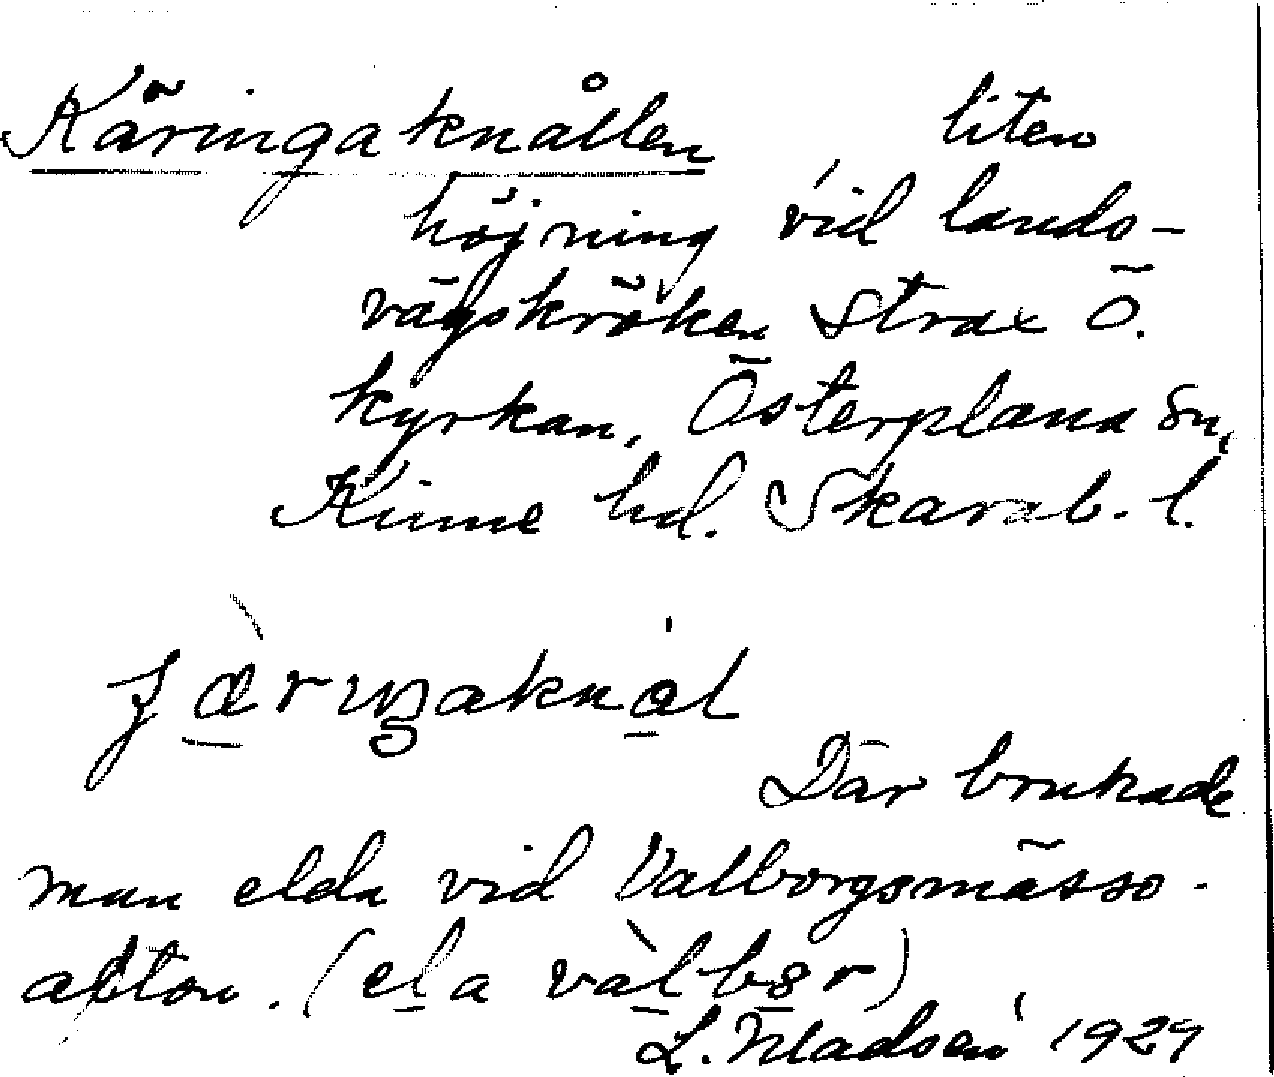 Käringaknållen liten
höjning vid lands-
vägskröken strax Ö.
kyrkan, Österplana sn,
Kinne hd. Skarab. l.
Där brukade
man elda vid Valborgsmässo-
afton. (
L. Madsén 1929